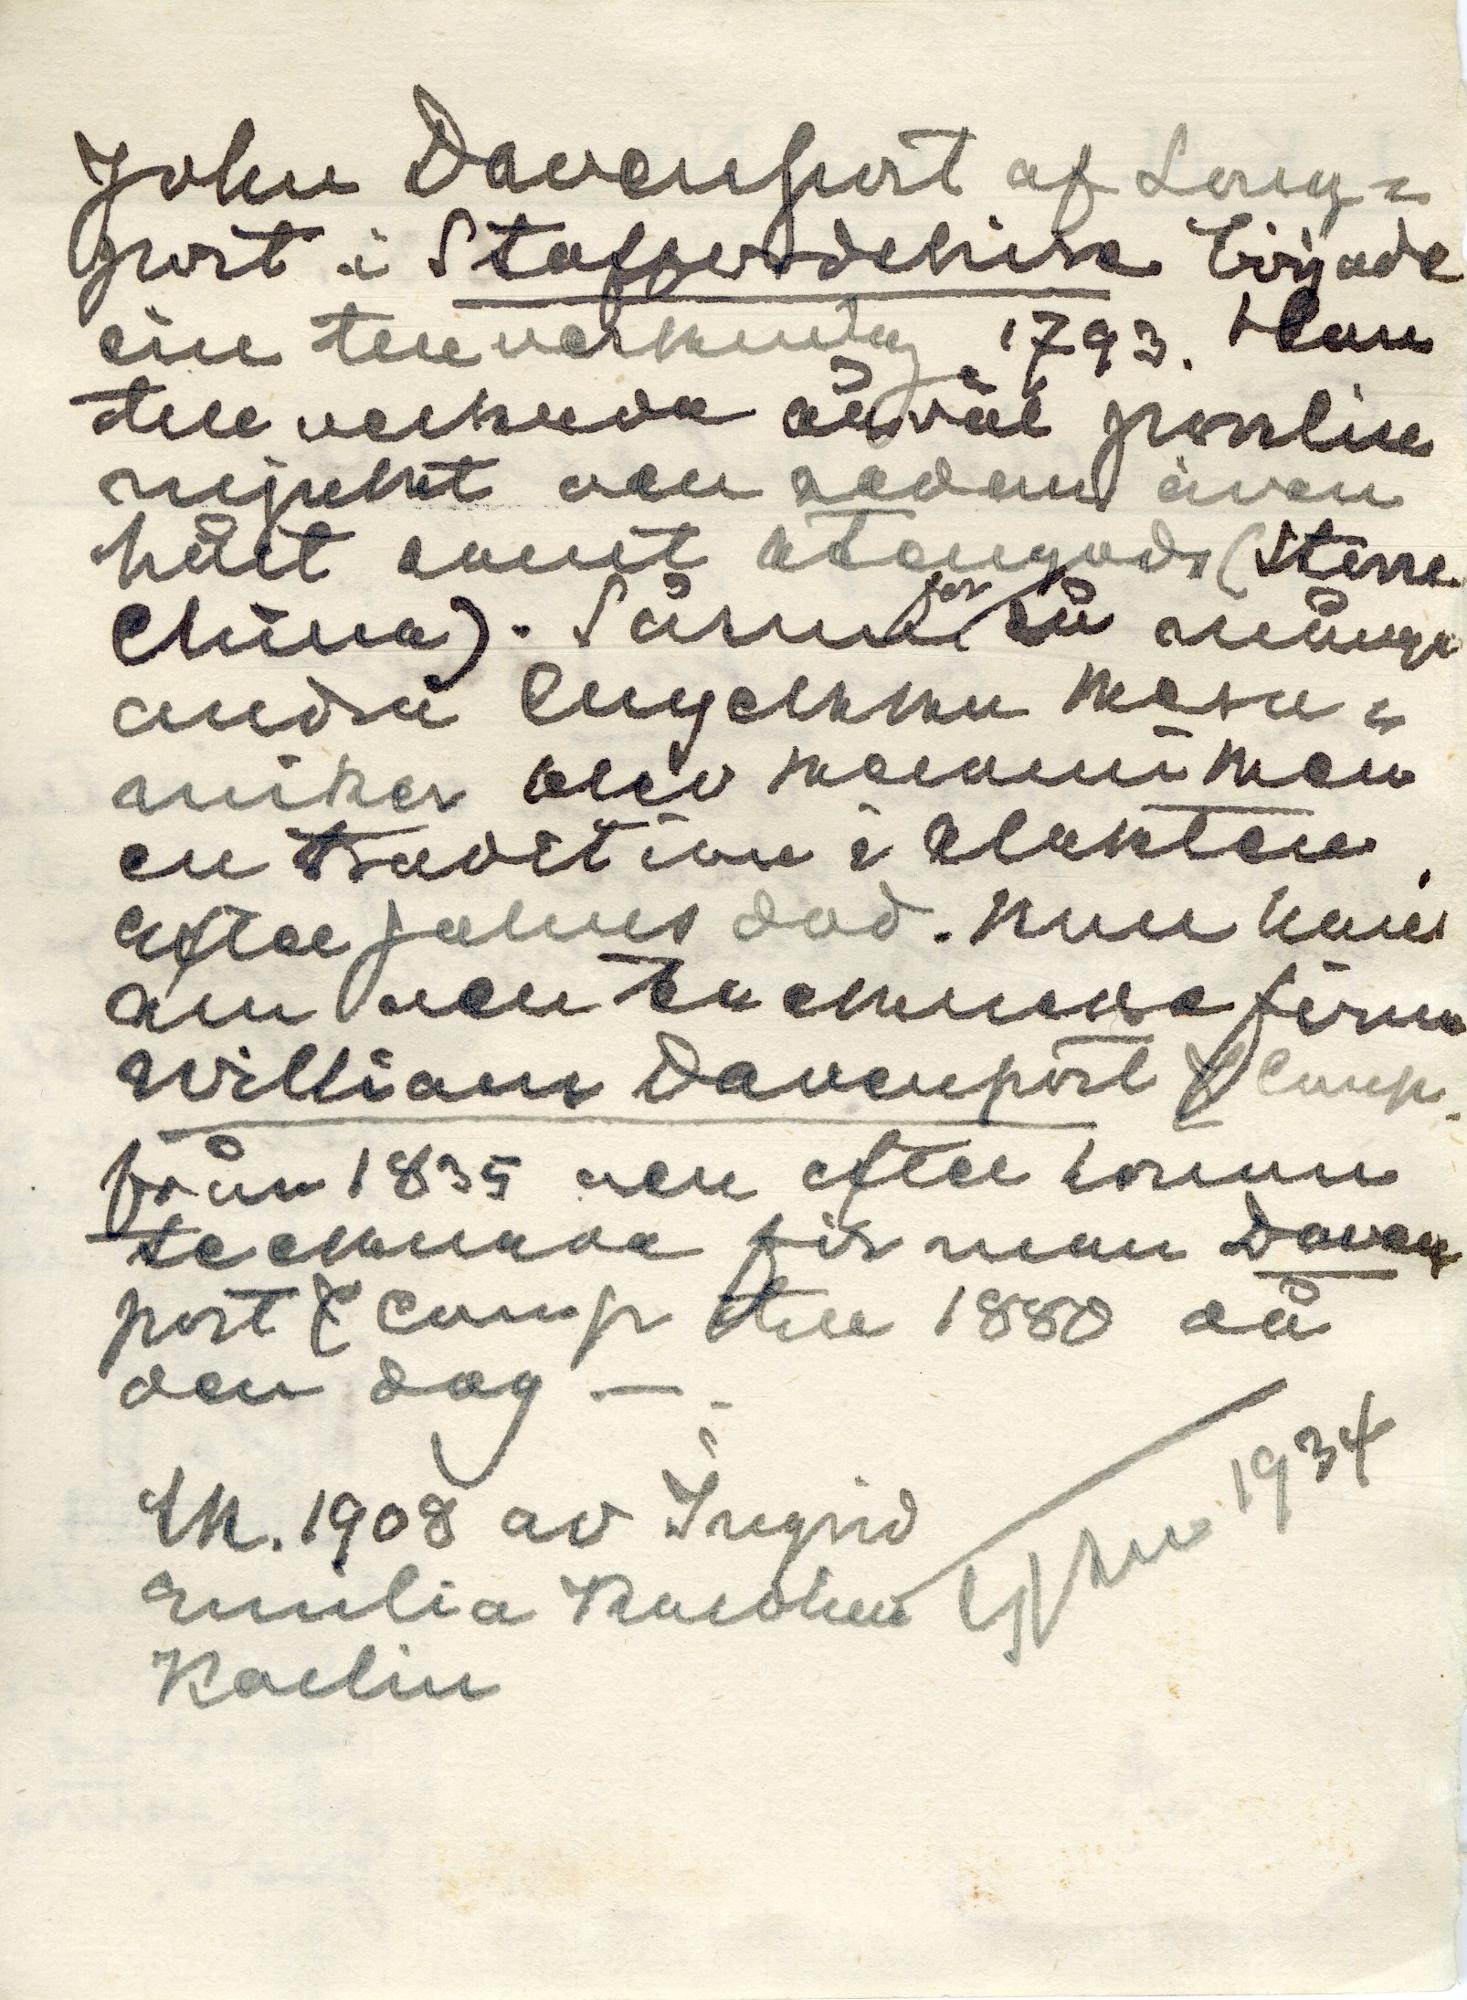 John Davenport af Long=
port i Staffordshire började
sin tillverkning 1793. Han
tillverkade såväl porslin
mjukt och sedan även
hårt samt stengods (Stone
China). Som för så många
andra Engelska kera=
miker blev keramiken
en tradition i släkten
efter Johns död. Nun
och tecknade firma
William Davenport & Comp.
från 1835 och efter honom
tecknade firman Daven
port & Comp till 1880 då
den dog —
Sk. 1908 av Ingrid
Emilia
1934